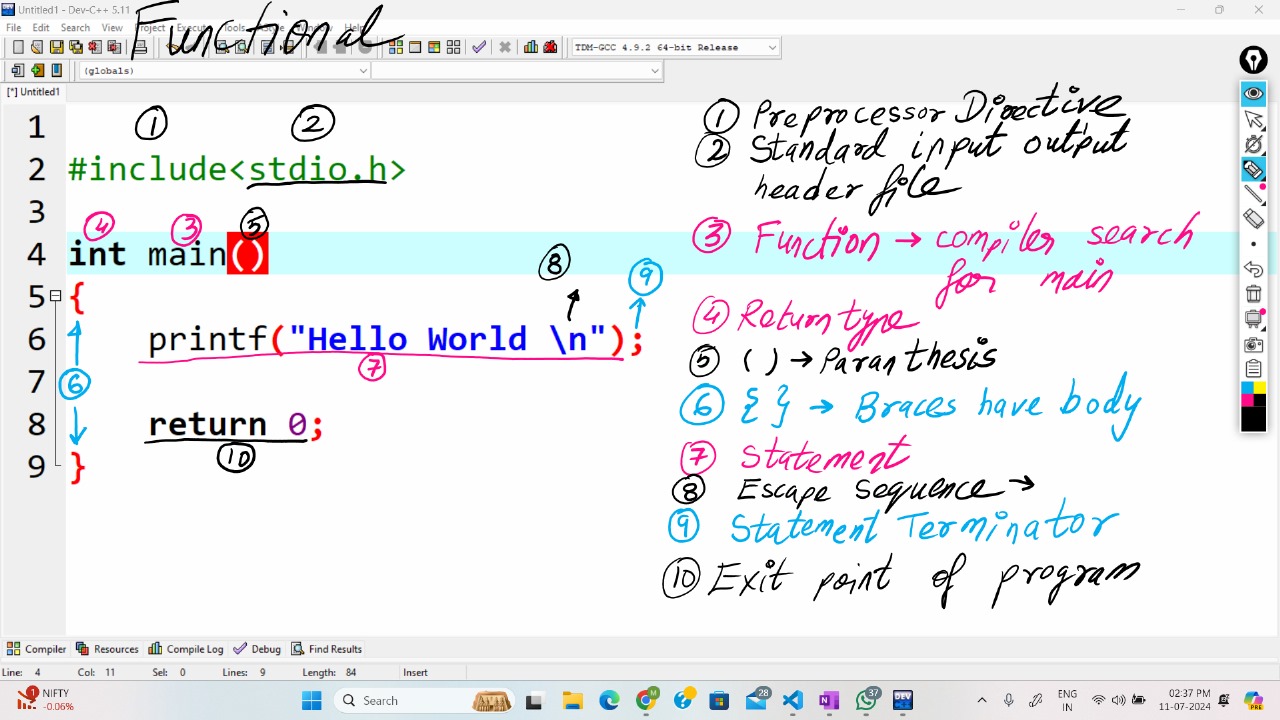 Untitled1 - Dev-C++ 5.11
File Edit Search View Project Execute Tools AStyle Window Help
Functional
TDM-GCC 4.9.2 64-bit Release
(globals)
[*] Untitled1
1
① ②
2 #include<stdio.h>
3
④ ③ ⑤
4 int main()
⑧ ⑨
5 {
6 printf("Hello World \n");
7 ⑥ ⑦
8 return 0;
⑩
9 }
① Preprocessor Directive
② Standard input output
header file
③ Function → compiler search
for main
④ Return type
⑤ ( ) → Paranthesis
⑥ { } → Braces have body
⑦ Statement
⑧ Escape Sequence →
⑨ Statement Terminator
⑩ Exit point of program
Compiler Resources Compile Log Debug Find Results
Line: 4 Col: 11 Sel: 0 Lines: 9 Length: 84 Insert
1 NIFTY
-0.06%
Search
28
37
DEV
ENG
IN
02:37 PM
11-07-2024
PRE